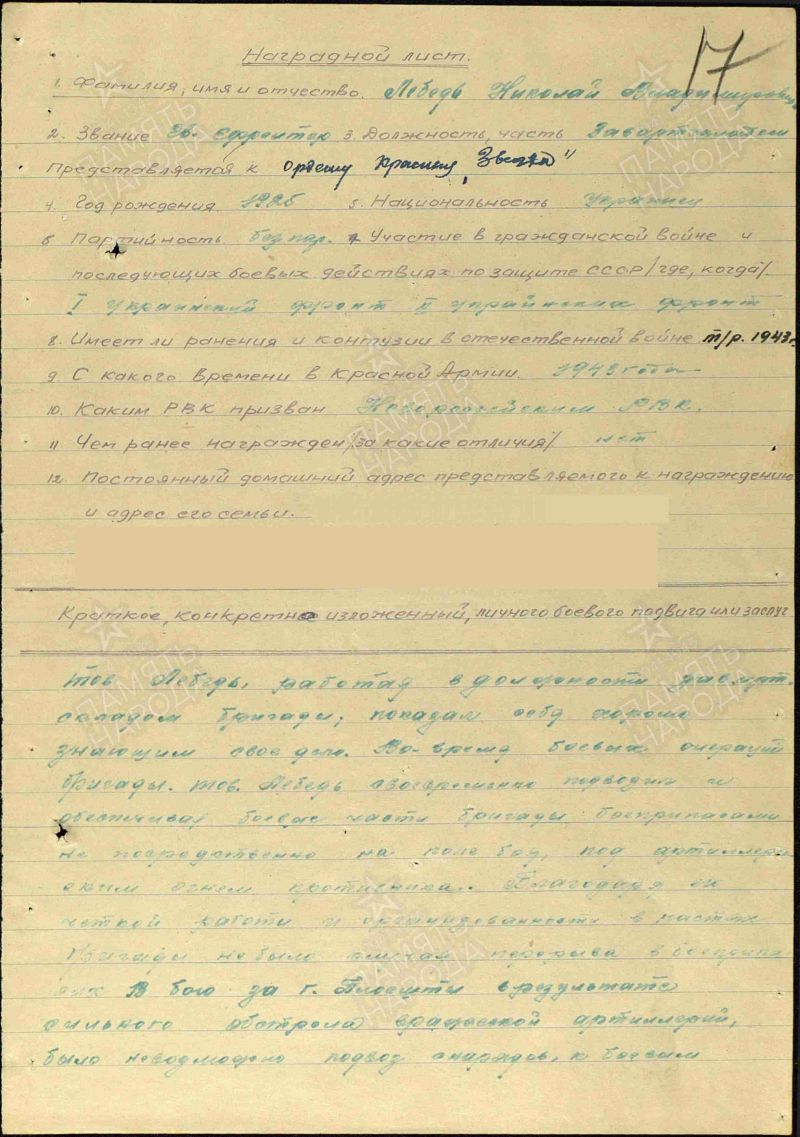 17
Наградной лист.
1. Фамилия, имя и отчество. Лебедь Николай Владимирович
2. Звание Гв. Ефрейтор 3. Должность, часть Завартскладом
Представляется к ордену Красная Звезда"
4. Год рождения 1926 5. Национальность Украинец
6 Партийность без пар. 7 Участие в гражданской войне и
последующих боевых действиях по защите СССР/где, когда/.
I украинский фронт II украинских фронт
8. Имеет ли ранения и контузии в отечественной войне т/р. 1943г.
9. С какого времени в Красной Армии. 1943 года
10. Каким РВК призван РВК.
11 Чем ранее награжден/за какие отличия/ нет
12. Постоянный домашний адрес представляемого к награждению
и адрес его семьи.
Краткое, конкретное изложенный, личного боевого подвига или заслуг
тов Лебедь, работая в должности зав. арт.
складом бригады, показал себя хорошо
знающим свое дело. Во-время боевых операций
бригады. тов. Лебедь своевременно подводил и
обеспечивал боевые части бригады боеприпасами
не посредственно на поле боя, под артиллери
ским огнем противника. Благодаря ек
четкой работы и организованности в частях
бригады не было случая перерыва в боеприпа
сах В бою за г. Плоешти в результате
сильного обстрела вражеской артиллерий,
было невозможно подвоз снарядов, к боевым